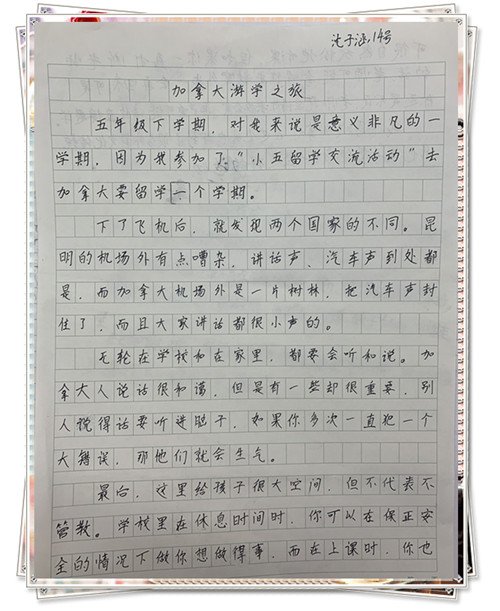 沈子涵,14号
加拿大游学之旅
五年级下学期，对我来说是意义非凡的一
学期，因为我参加了“小五留学交流活动”去
加拿大要留学一个学期。
下了飞机后，就发现两个国家的不同。昆
明的机场外有点嘈杂，讲话声、汽车声到处都
是，而加拿大机场外是一片树林，把汽车声封
住了，而且大家讲话都很小声的。
无轮在学校和在家里，都要会听和说。加
拿大人说话很和谐，但是有一些却很重要，别
人说得话要听进肚子，如果你多次一直犯一个
大错误，那他们就会生气。
最后，这里给孩子很大空间，但不代表不
管教。学校里在休息时间时，你可以在保正安
全的情况下做你想做得事，而在上课时，你也